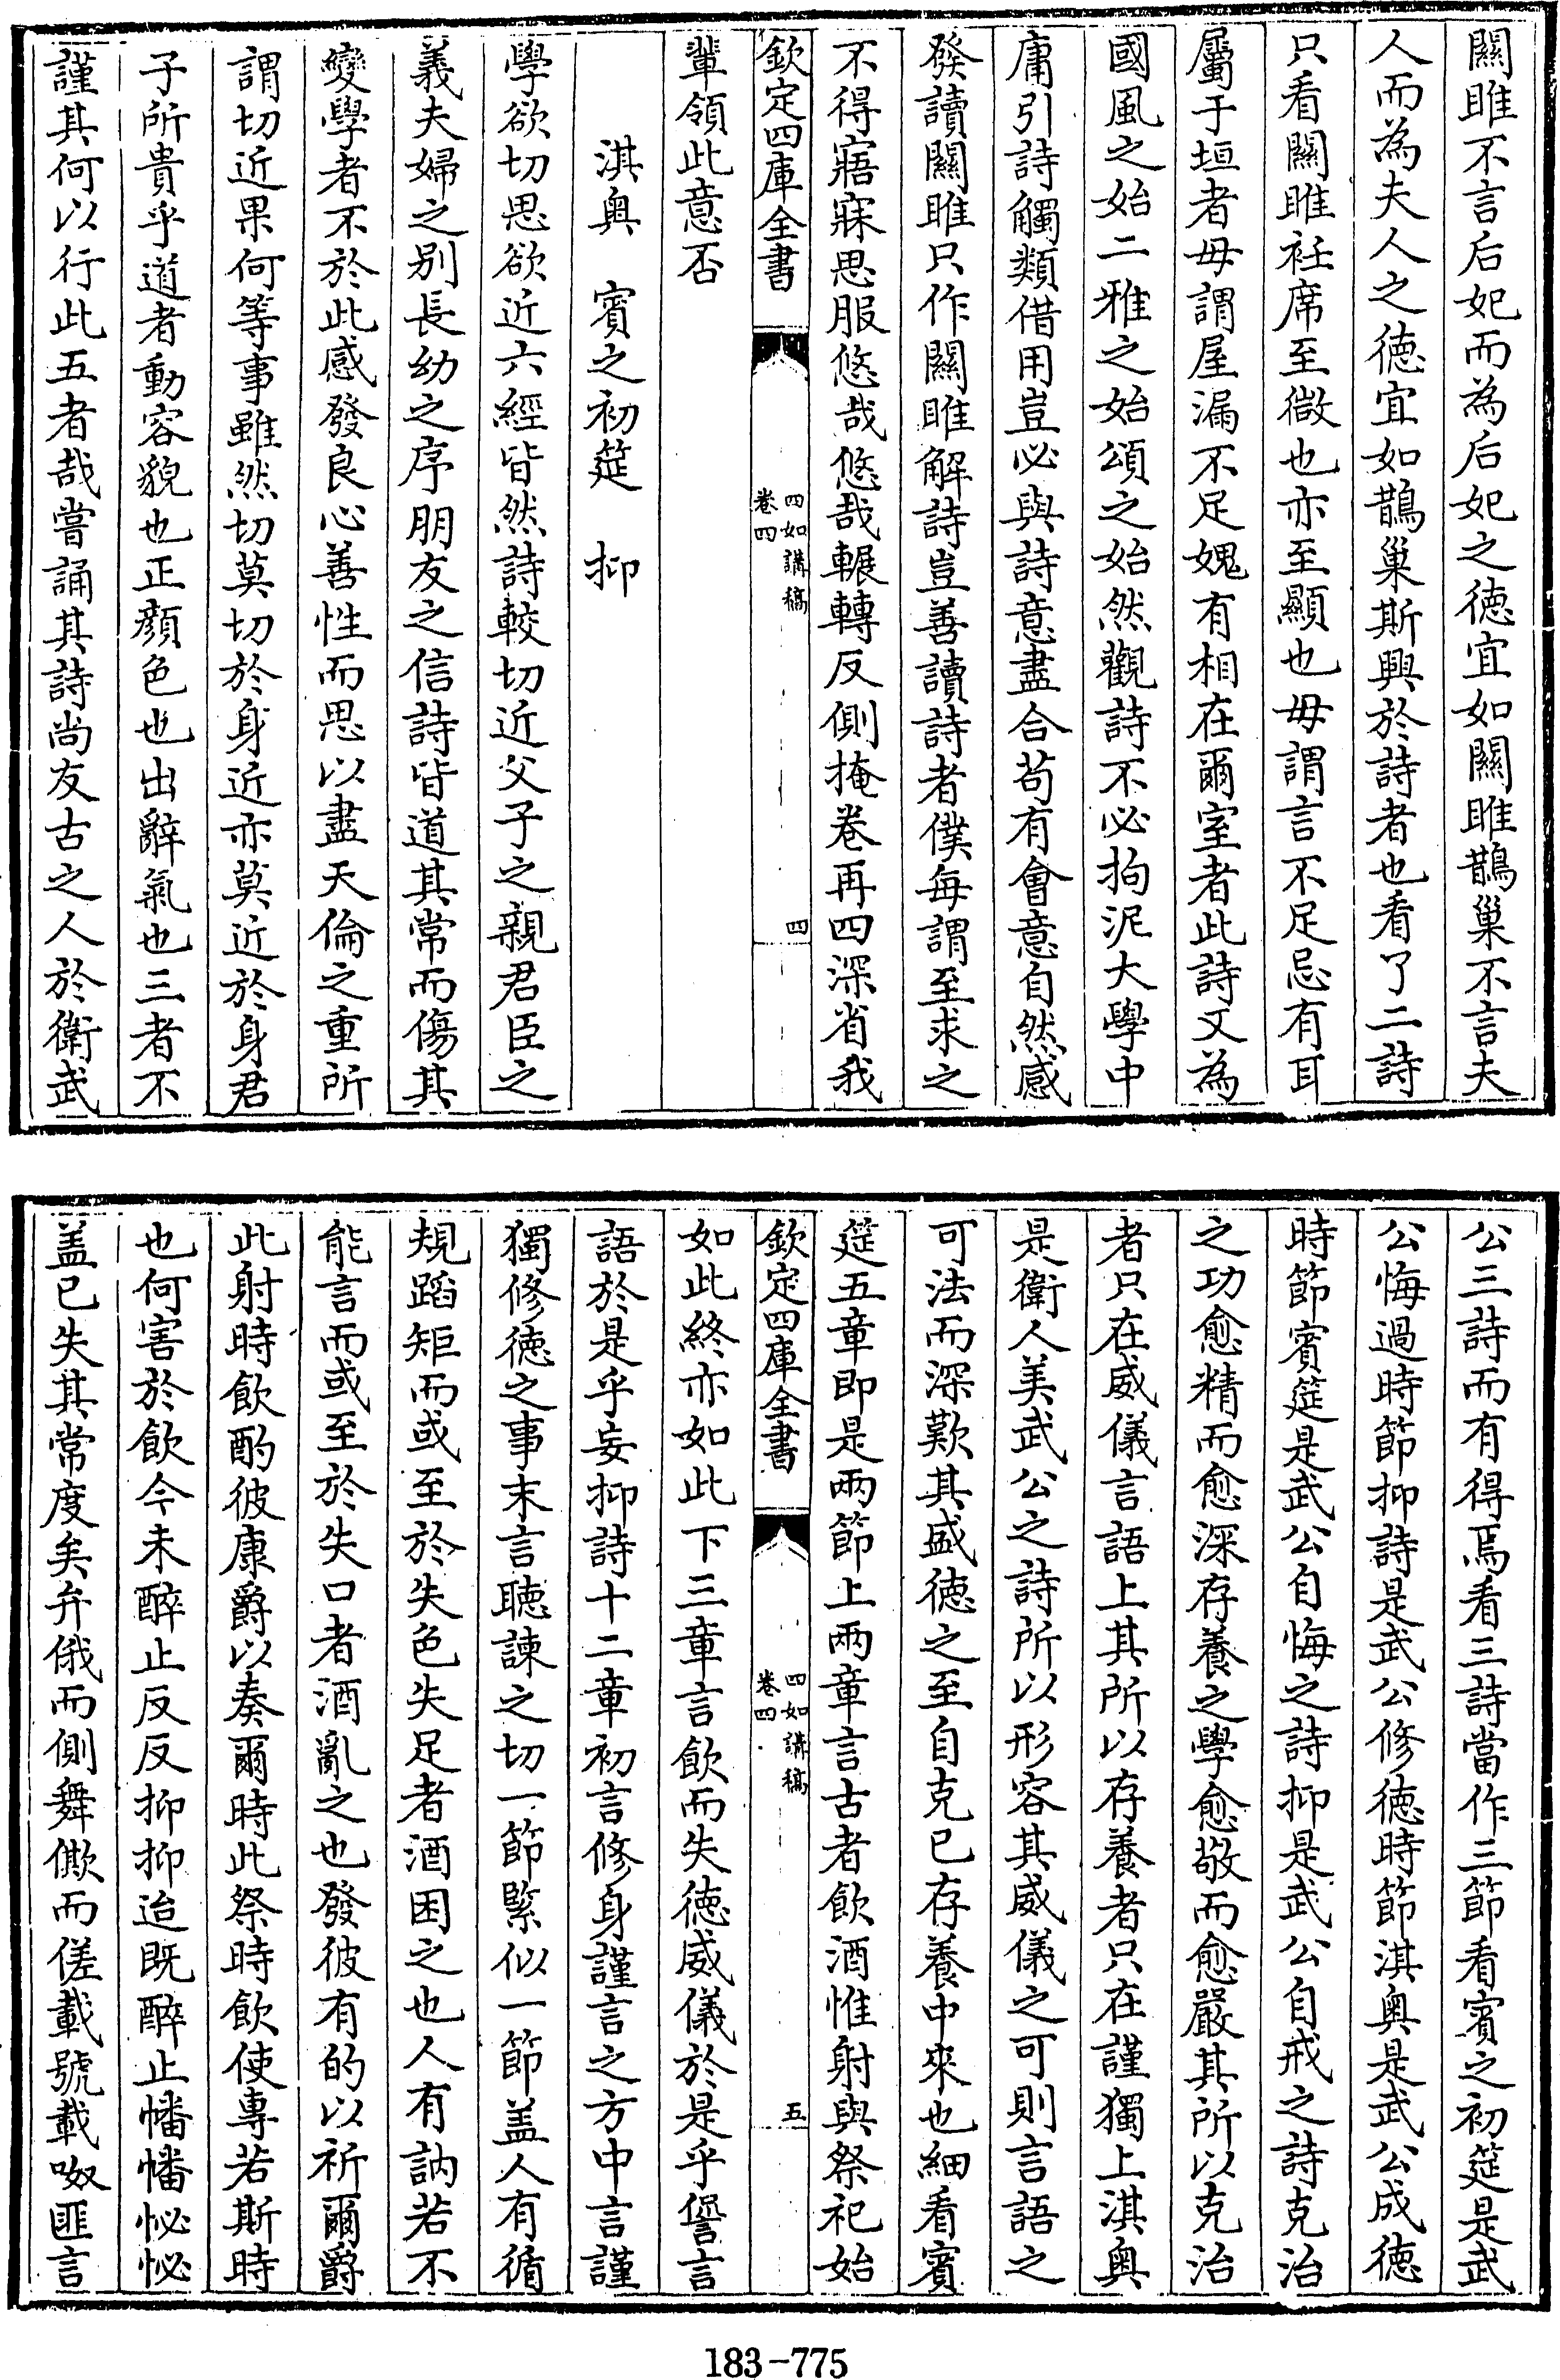 關雎不言后妃而為后妃之徳宜如關雎鵲巢不言夫
人而為夫人之徳宜如鵲巢斯興於詩者也看了二詩
只看關雎衽席至微也亦至顯也毋謂言不足忌有耳
屬于垣者毋謂屋漏不足媿有相在爾室者此詩又為
國風之始二雅之始頌之始然觀詩不必拘泥大學中
庸引詩觸類借用豈必與詩意盡合苟有會意自然感
發讀關雎只作關雎解詩豈善讀詩者僕每謂至求之
不得寤寐思服悠哉悠哉輾轉反側掩卷再四深省我
欽定四庫全書
四如講稿
卷四
四
輩領此意否
淇奥 賓之初筵 抑
學欲切思欲近六經皆然詩較切近父子之親君臣之
義夫婦之别長幼之序朋友之信詩皆道其常而傷其
變學者不於此感發良心善性而思以盡天倫之重所
謂切近果何等事雖然切莫切於身近亦莫近於身君
子所貴乎道者動容貌也正顔色也出辭氣也三者不
謹其何以行此五者哉嘗誦其詩尚友古之人於衛武
公三詩而有得焉看三詩當作三節看賓之初筵是武
公悔過時節抑詩是武公修徳時節淇奥是武公成徳
時節賓筵是武公自悔之詩抑是武公自戒之詩克治
之功愈精而愈深存養之學愈敬而愈嚴其所以克治
者只在威儀言語上其所以存養者只在謹獨上淇奥
是衛人美武公之詩所以形容其威儀之可則言語之
可法而深歎其盛徳之至自克已存養中來也細看賓
筵五章即是兩節上兩章言古者飲酒惟射與祭祀始
欽定四庫全書
四如講稿
卷四
五
如此終亦如此下三章言飲而失徳威儀於是乎諐言
語於是乎妄抑詩十二章初言修身謹言之方中言謹
獨修徳之事末言聽諫之切一節緊似一節盖人有循
規蹈矩而或至於失色失足者酒困之也人有訥若不
能言而或至於失口者酒亂之也發彼有的以祈爾爵
此射時飲酌彼康爵以奏爾時此祭時飲使專若斯時
也何害於飲今未醉止反反抑抑迨既醉止幡幡怭怭
盖已失其常度矣弁俄而側舞僛而傞載號載呶匪言
183-775